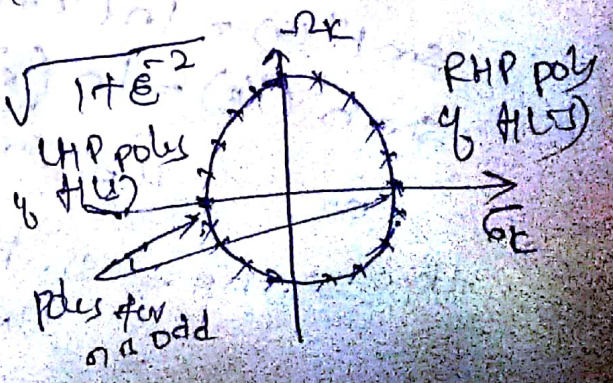 Ωk
√1+ε^-2
RHP poly
of H(s)
LHP poles
of H(s)
σk
poles for
n is odd